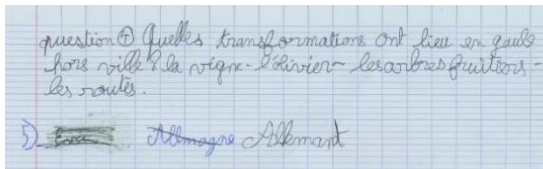 question ④ Quelles transformations ont lieu en gaule
hors ville ? la vigne - l'olivier - les arbres fruitiers -
les routes.
5) Allemagne Allemant